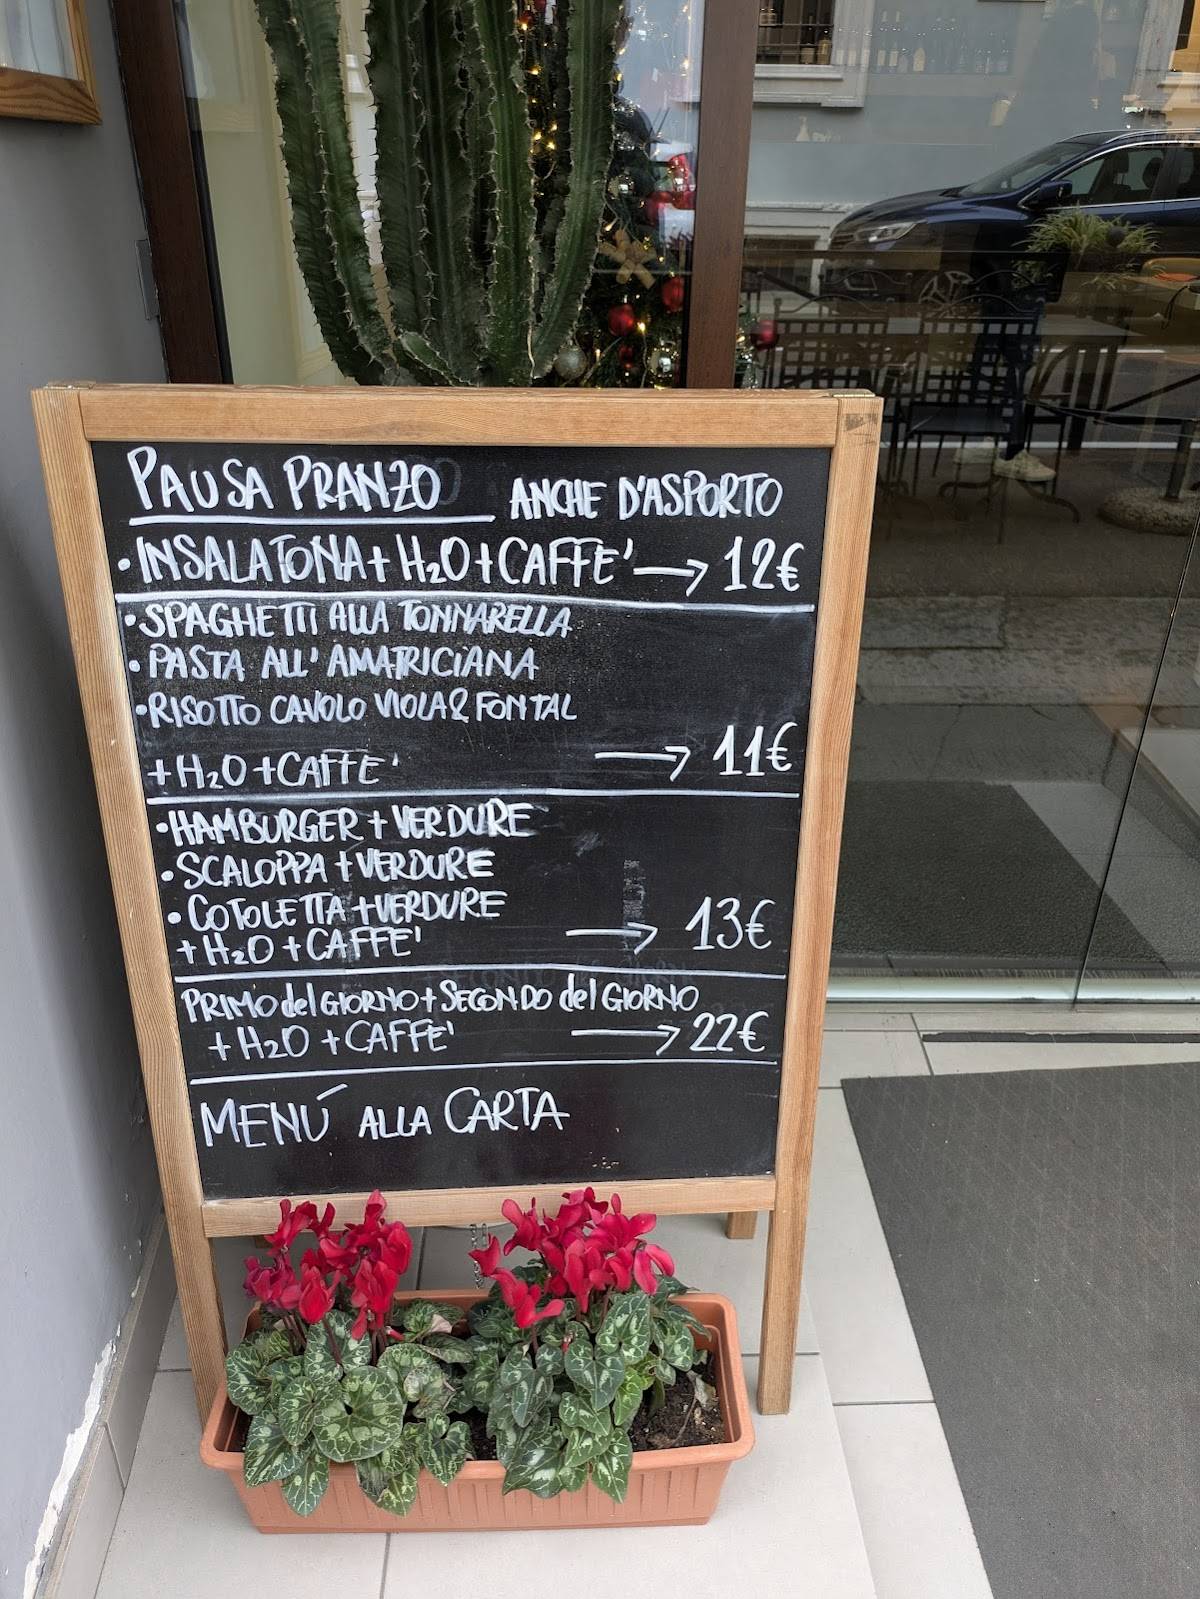 PAUSA PRANZO ANCHE D'ASPORTO
• INSALATONA + H₂O + CAFFE' → 12€
• SPAGHETTI ALLA TONNARELLA
• PASTA ALL' AMATRICIANA
• RISOTTO CAVOLO VIOLA & FONTAL
+ H₂O + CAFFE' → 11€
• HAMBURGER + VERDURE
• SCALOPPA + VERDURE
• COTOLETTA + VERDURE
+ H₂O + CAFFE' → 13€
PRIMO del GIORNO + SECONDO del GIORNO
+ H₂O + CAFFE' → 22€
MENÚ ALLA CARTA